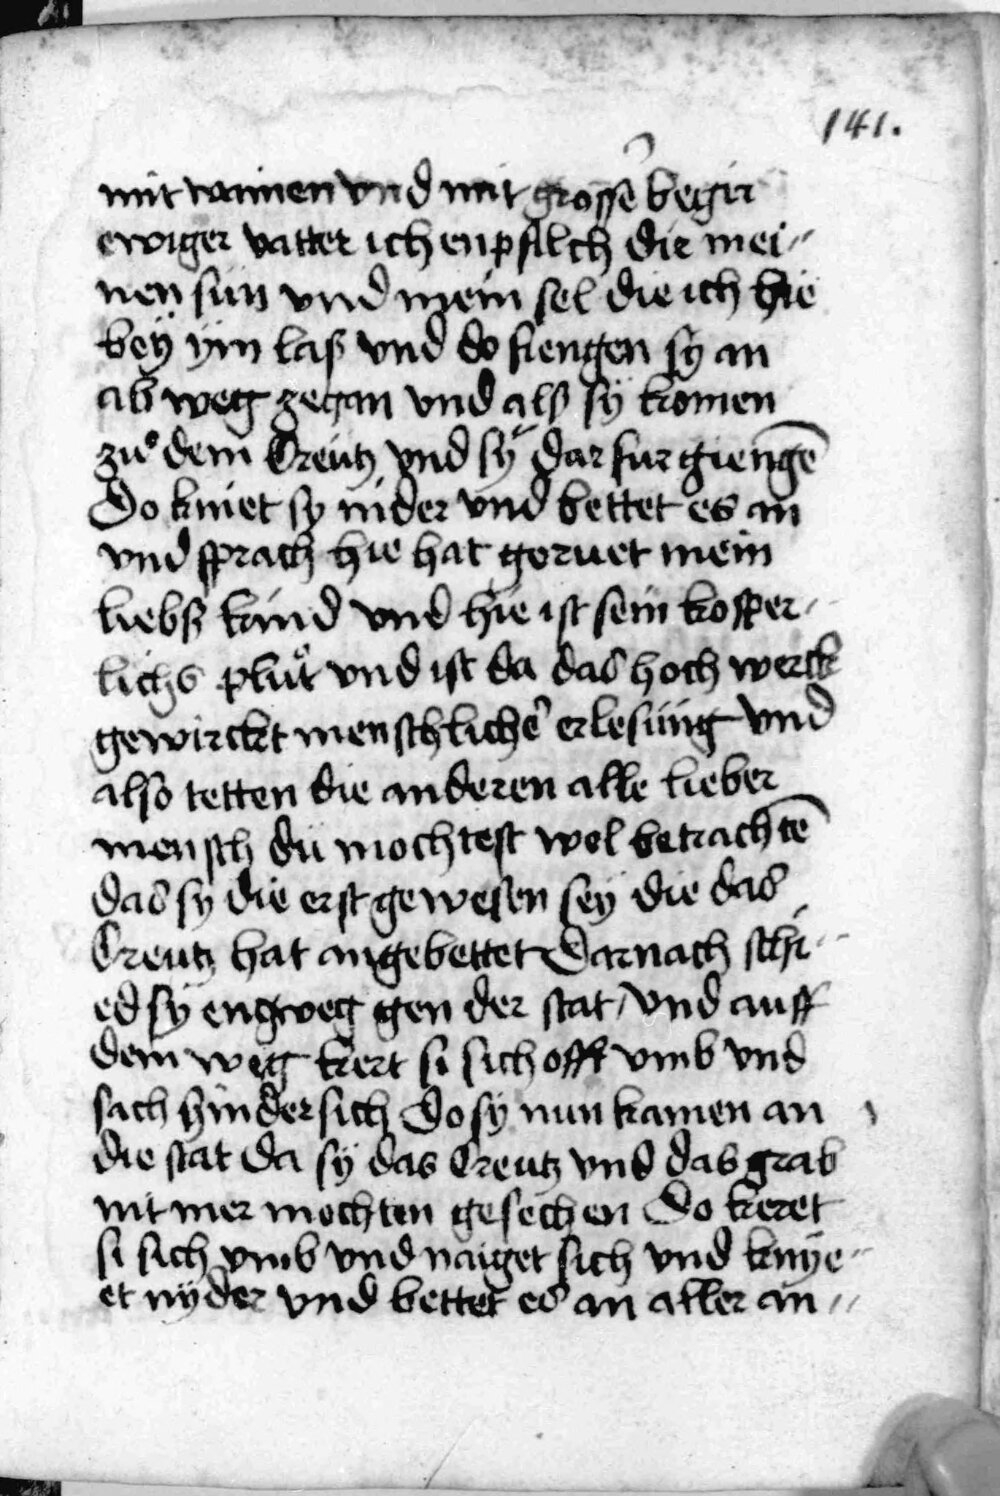 141.
mit wainen vnd mit grossē begir
ewiger vatter ich enpfilch dir mei-
nen sün vnd mein sel die ich hie
beÿ ÿm laß vnd do fiengen sÿ an
ab weg zegan vnd alß sÿ komen
zuͦ dem Creutz vnd sÿ dar fur giengē
Do kniet sy nider vnd bettet es an
vnd sprach hie hat geruet mein
liebß kind vnd hie ist sein kosper-
lichs pluͦt vnd ist da das hoch werck
gewirckt menschlichē erlesüng vnd
also tetten die anderen alle lieber
mensch du mochtest wol betrachtē
das sÿ die erst gewesen seÿ die das
Creutz hat angebettet Darnach schi-
ed sÿ engweg gen der stat / vnd auff
dem weg kert si sich offt vmb vnd
sach hinder sich Do sÿ nun kamen an
die stat da sÿ das Creutz vnd das grab
nit mer mochten gesechen Do keret
si sich vmb vnd naiget sich vnd knÿe-
et nÿder vnd bettet es an aller an-